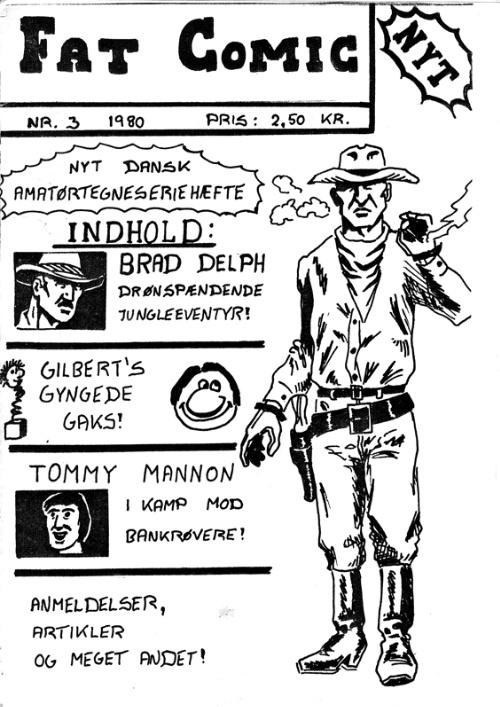 FAT COMIC
NYT
NR. 3 1980 PRIS: 2,50 KR.
NYT DANSK
AMATØRTEGNESERIEHÆFTE
INDHOLD:
BRAD DELPH
DRØNSPÆNDENDE
JUNGLEEVENTYR!
GILBERT'S
GYNGEDE
GAKS!
TOMMY MANNON
I KAMP MOD
BANKRØVERE!
ANMELDELSER,
ARTIKLER
OG MEGET ANDET!